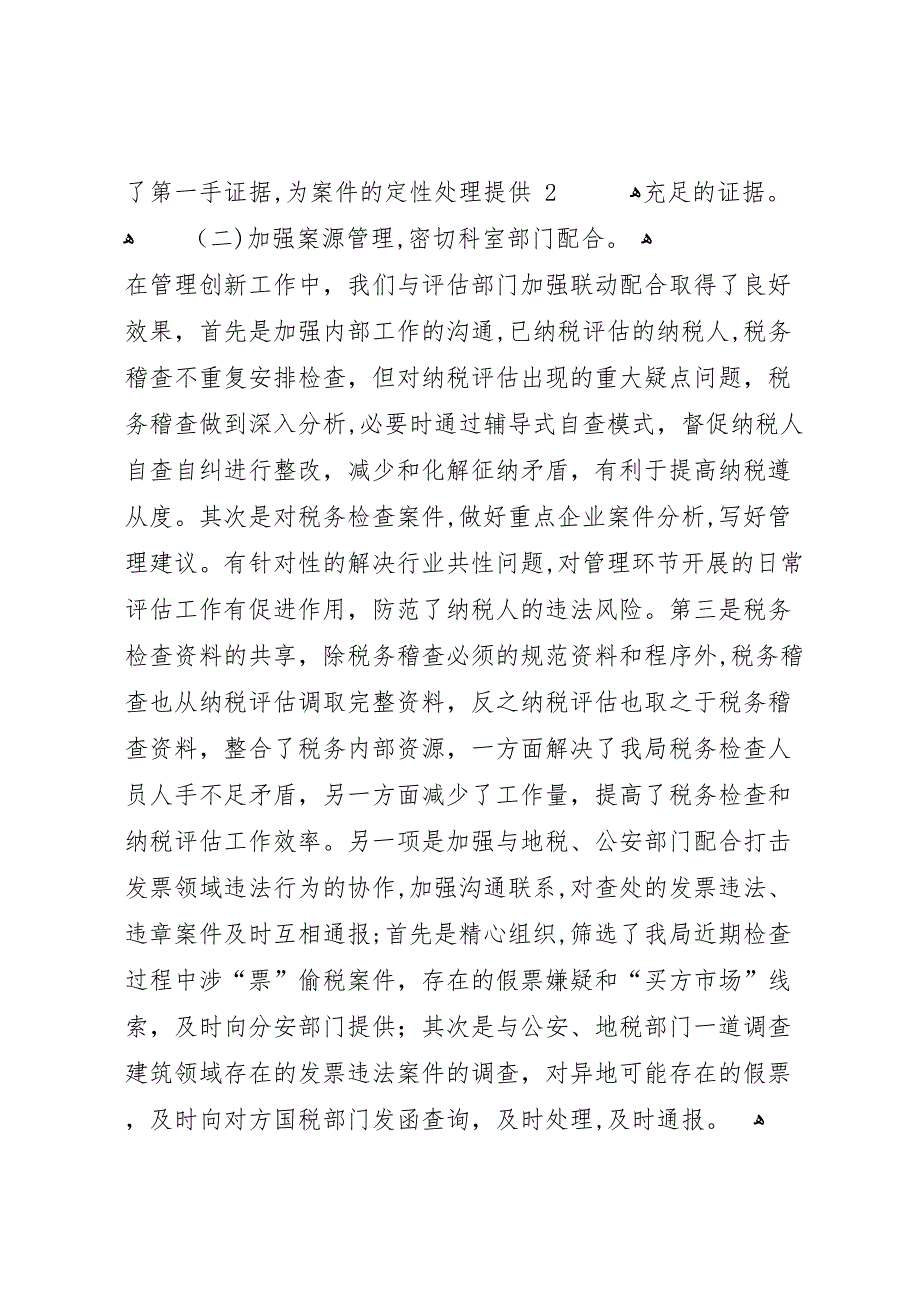 了第一手证据,为案件的定性处理提供 2 ﻫ充足的证据。
ﻫ （二)加强案源管理,密切科室部门配合。ﻫ
在管理创新工作中，我们与评估部门加强联动配合取得了良好
效果，首先是加强内部工作的沟通,已纳税评估的纳税人,税务
稽查不重复安排检查，但对纳税评估出现的重大疑点问题，税
务稽查做到深入分析,必要时通过辅导式自查模式，督促纳税人
自查自纠进行整改，减少和化解征纳矛盾，有利于提高纳税遵
从度。其次是对税务检查案件,做好重点企业案件分析,写好管
理建议。有针对性的解决行业共性问题,对管理环节开展的日常
评估工作有促进作用，防范了纳税人的违法风险。第三是税务
检查资料的共享，除税务稽查必须的规范资料和程序外,税务稽
查也从纳税评估调取完整资料，反之纳税评估也取之于税务稽
查资料，整合了税务内部资源，一方面解决了我局税务检查人
员人手不足矛盾，另一方面减少了工作量，提高了税务检查和
纳税评估工作效率。另一项是加强与地税、公安部门配合打击
发票领域违法行为的协作,加强沟通联系,对查处的发票违法、
违章案件及时互相通报;首先是精心组织,筛选了我局近期检查
过程中涉“票”偷税案件，存在的假票嫌疑和“买方市场”线
索，及时向分安部门提供；其次是与公安、地税部门一道调查
建筑领域存在的发票违法案件的调查，对异地可能存在的假票
，及时向对方国税部门发函查询，及时处理,及时通报。 ﻫ